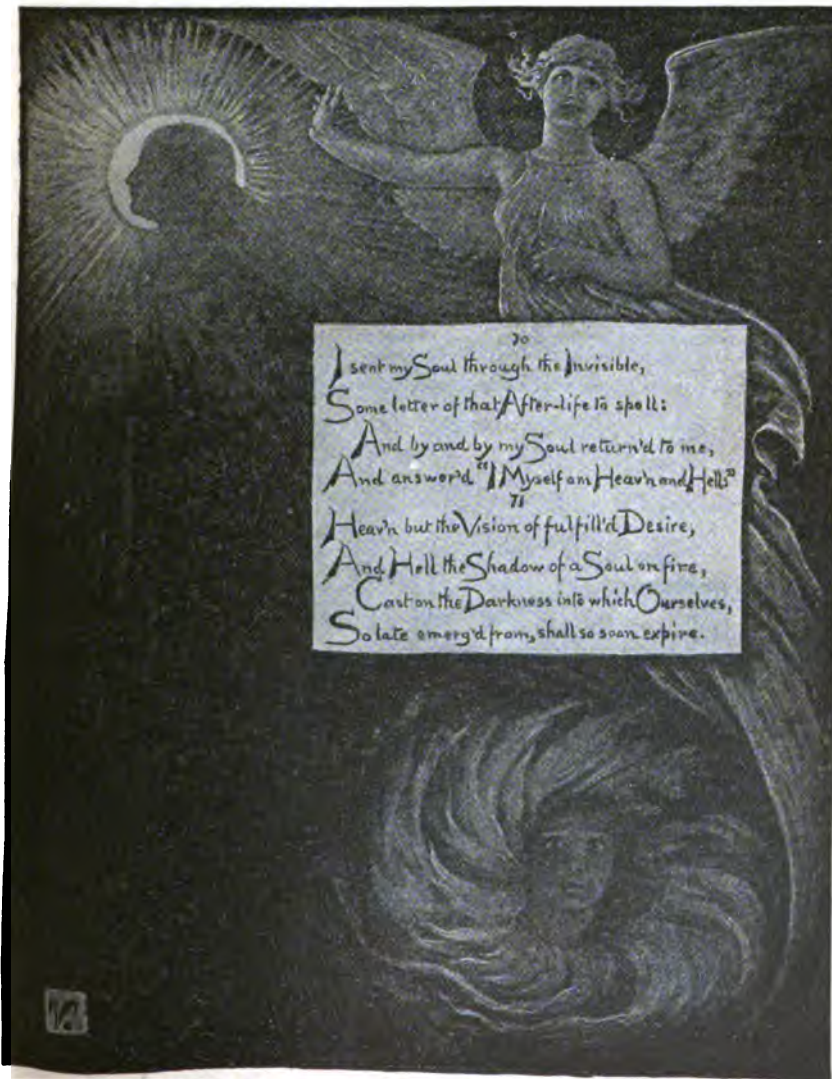 70
I sent my Soul through the Invisible,
Some letter of that After-life to spell:
And by and by my Soul return'd to me,
And answer'd "I Myself am Heav'n and Hell:"
71
Heav'n but the Vision of fulfill'd Desire,
And Hell the Shadow of a Soul on fire,
Cast on the Darkness into which Ourselves,
So late emerg'd from, shall so soon expire.